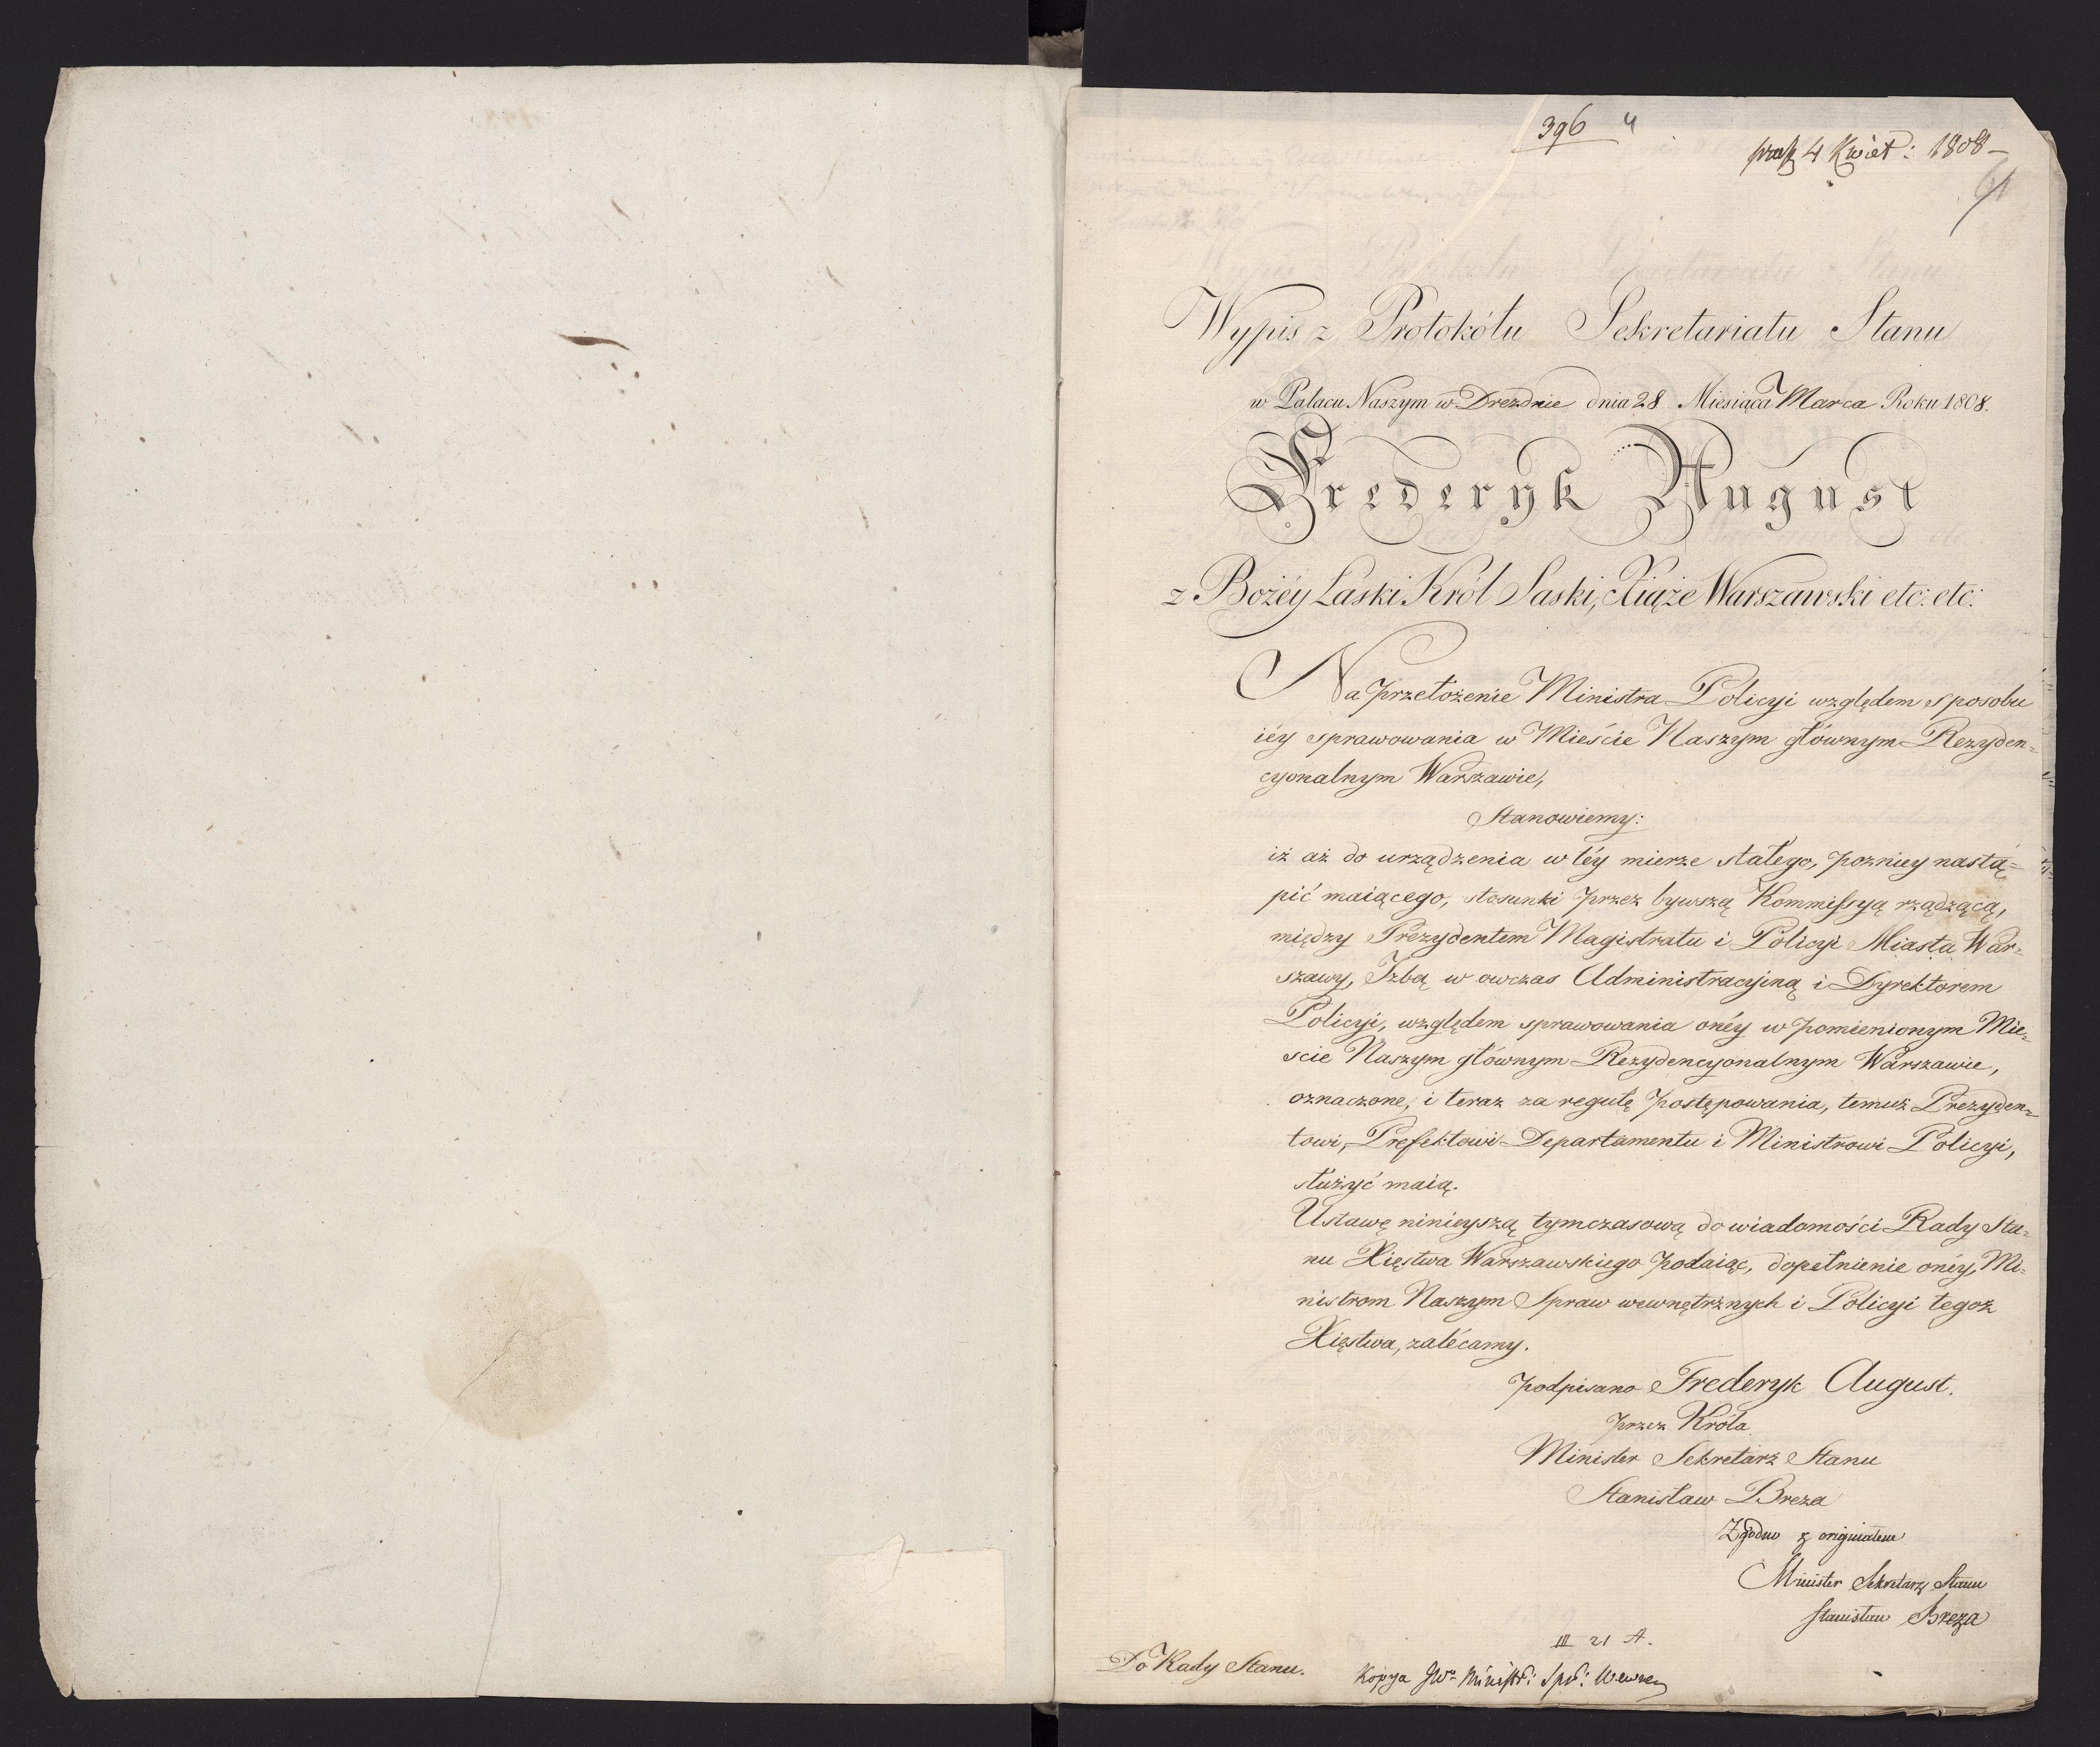 396 4
pras 4 Kwiet: 1808 –
Wypis z Protokółu Sekretariatu Stanu
w Pałacu Naszym w Dreznie dnia 28 Miesiąca Marca Roku 1808.
Frederyk August
z Bożéy Łaski Król Saski, Xiąże Warszawski etc: etc:
Na przełożenie Ministra Policyi względem sposobu
iéy sprawowania w Mieście Naszym głównym Rezyden=
cyonalnym Warszawie,
Stanowiemy:
iż aż do urządzenia w téy mierze stałego, pozniey nastą=
pić maiącego, stosunki przez bywszą Kommissyą rządzącą,
między Prezydentem Magistratu i Policyi Miasta War=
szawy, Izbą w owczas Administracyiną i Dyrektorem
Policyi, względem sprawowania onéy w pomienionym Mie=
scie Naszym głównym Rezydencyonalnym Warszawie,
oznaczone, i teraz za regułę postępowania, temuż Prezyden=
towi, Prefektowi Departamentu i Ministrowi Policyi,
służyć maią.
Ustawę ninieyszą tymczasową do wiadomości Rady Sta=
nu Xięstwa Warszawskiego podaiąc, dopełnienie onéy, Mi=
nistrom Naszym Spraw wewnętrznych i Policyi tegoż
Xięstwa, zalécamy.
podpisano Frederyk August.
przez Króla
Minister Sekretarz Stanu
Stanisław Breza
Zgodno z originałem
Minister Sekretarz Stanu
Stanisław Breza
III 21 A.
Do Rady Stanu.
Kopya JWo Ministr: Spr: Wewn